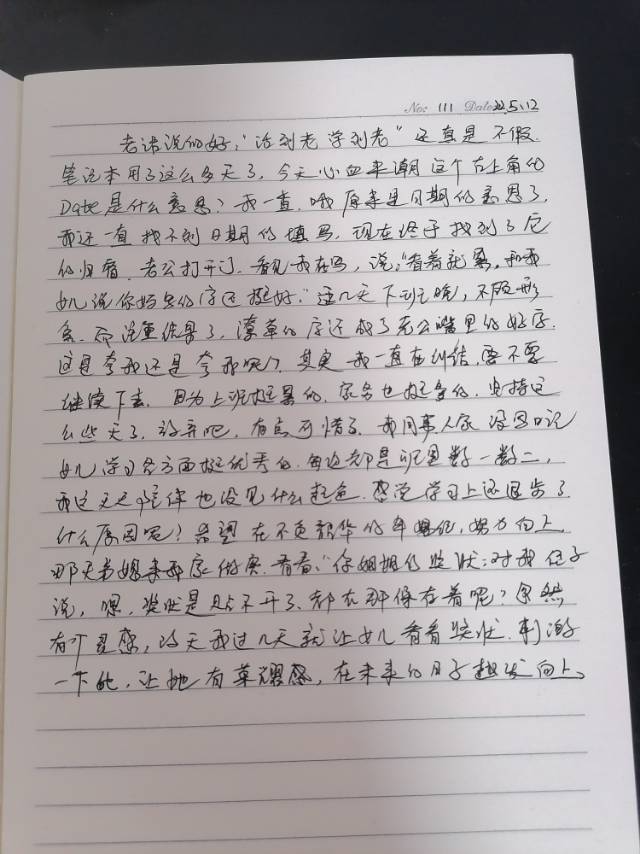 No: 111 Date 22.5.12
老话说的好，"活到老 学到老" 还真是不假.
笔记本用了这么多天了，今天心血来潮 这个右上角的
Date是什么意思？我一直. 哦原来是日期的意思了，
我还一直找不到日期的填写，现在终于找到了它
的归宿. 老公打开门，看见我在写，说，"看着就累，和我
女儿说你妈写的字还挺好."这几天下班晚，不服形
象. 潦草的字还成了老公嘴里的好字.
这是夸我还是夸我呢？其实我一直在纠结，要不要
继续下去. 因为上班挺累的，家务也挺多的，坚持这
么些天了，放弃吧，有点可惜了. 我同事人家没写日记
女儿学习各方面挺优秀的，每次都是班里数一数二，
我这天天陪伴也没见什么起色. 感觉学习上还退步了
什么原因呢？希望在不负韶华的年纪，努力向上.
那天弟媳来我家做客. 看看，"你姐姐的奖状，对我侄子
说，嘿，奖状是贴不开了，都在那保存着呢？忽然
有个灵感，改天我过几天就让女儿看看奖状. 刺激
一下她，让她有荣耀感，在未来的日子越发向上。